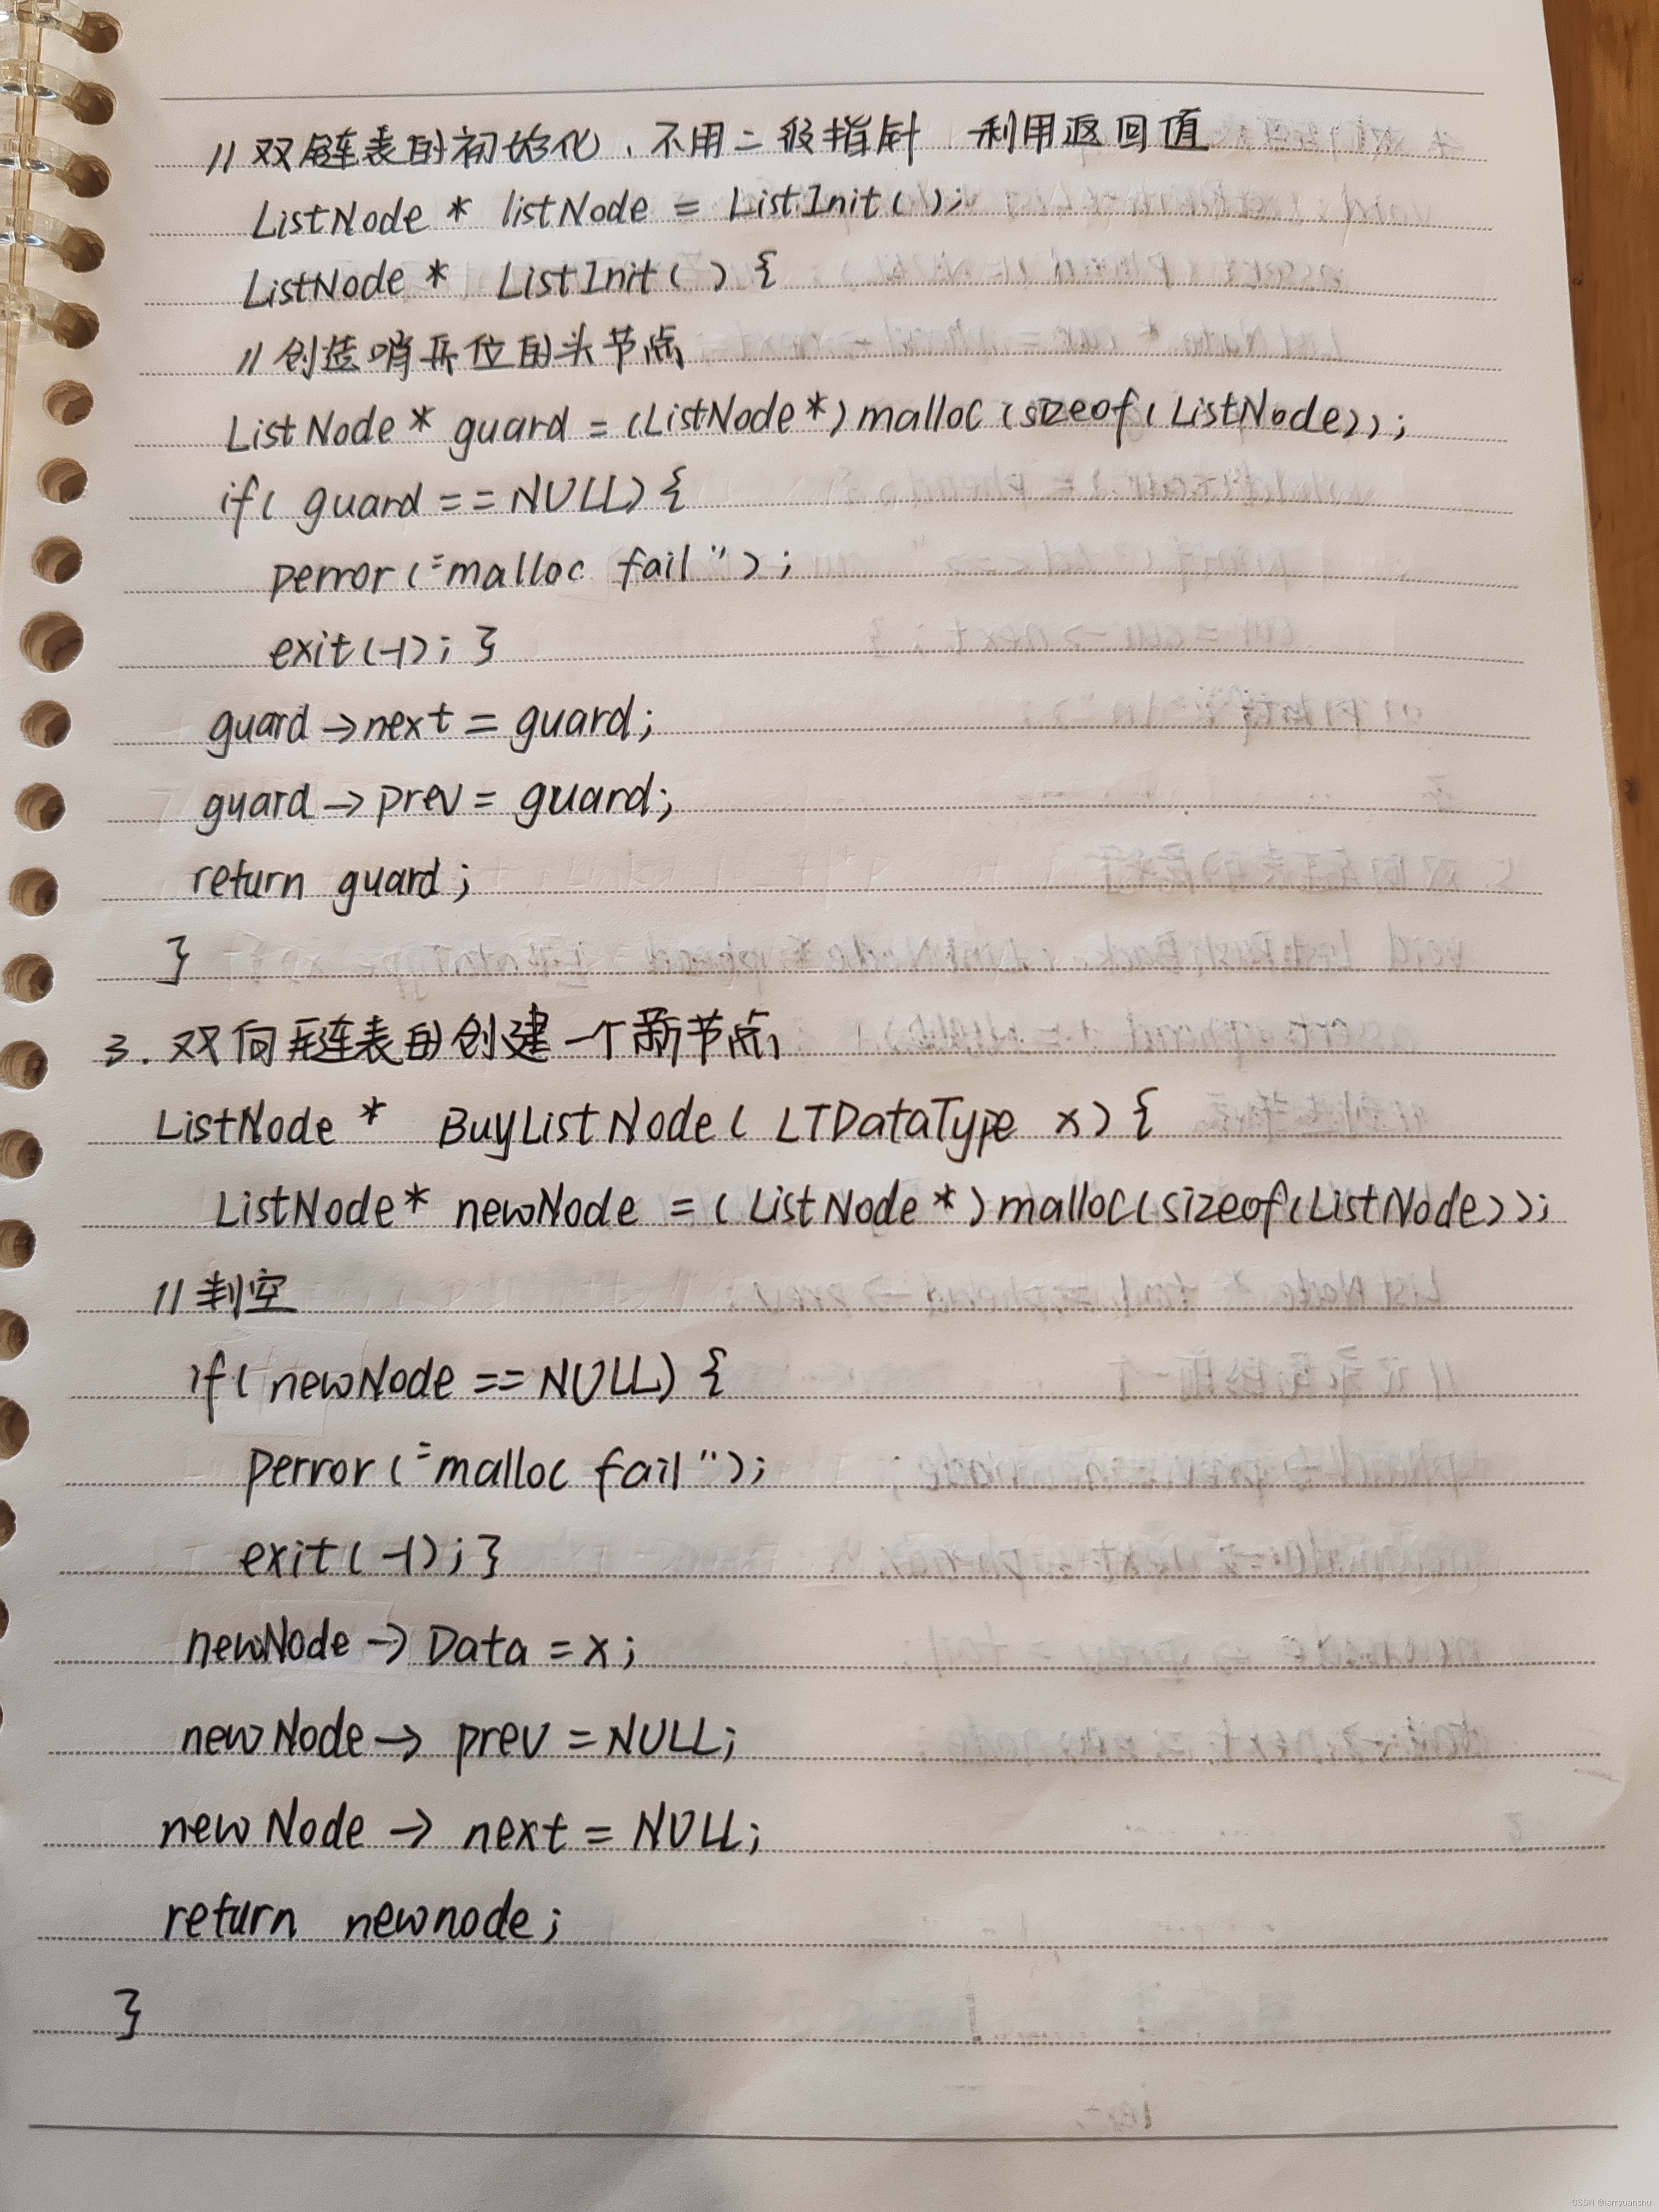 // 双链表的初始化、不用二级指针 利用返回值
ListNode * listNode = ListInit();
ListNode * ListInit() {
// 创造哨兵位的头节点
ListNode * guard = (ListNode*)malloc(sizeof(ListNode));
if( guard == NULL) {
perror("malloc fail");
exit(-1); }
guard->next = guard;
guard->prev = guard;
return guard;
}
3. 双向链表的创建一个新节点
ListNode * BuyListNode( LTDataType x) {
ListNode* newNode = (ListNode*)malloc(sizeof(ListNode));
// 判空
if( newNode == NULL) {
perror("malloc fail");
exit(-1); }
newNode -> Data = x;
newNode -> prev = NULL;
newNode -> next = NULL;
return newnode;
}
CSDN @iamyuanchu